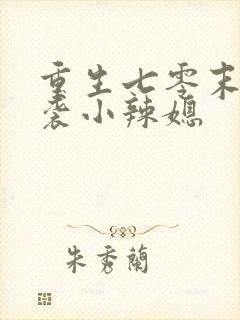 重生七零末
袭小辣媳
朱秀蘭